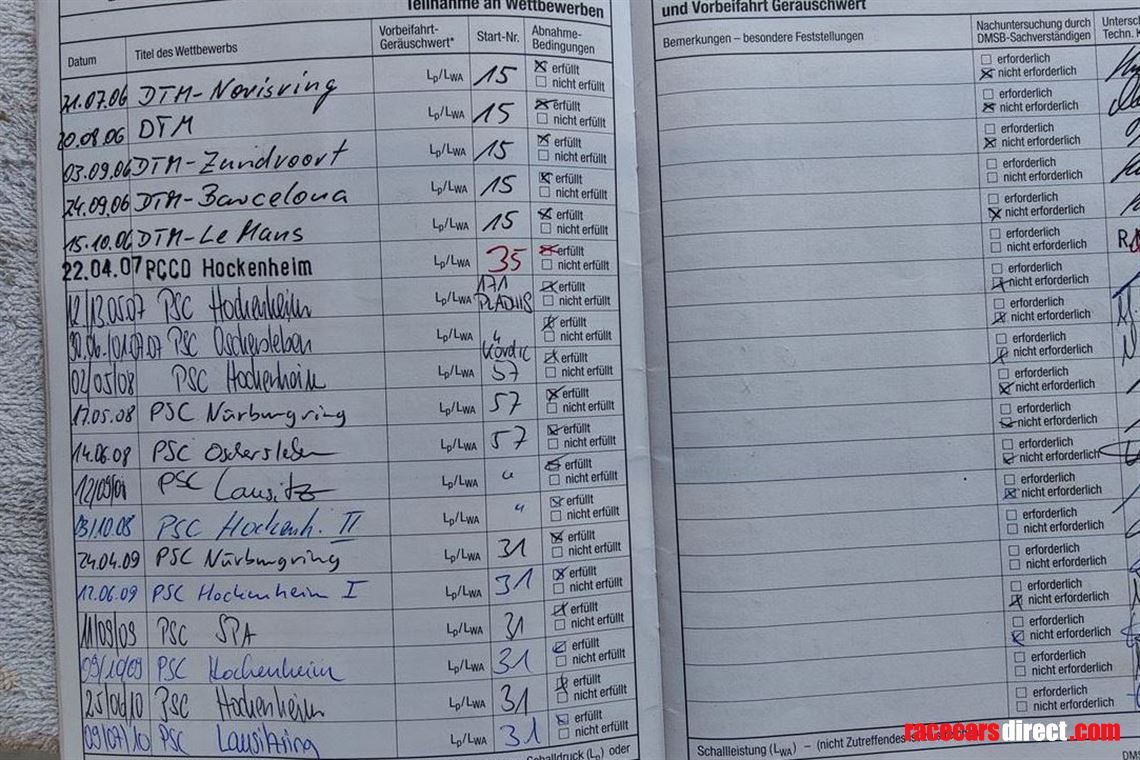 Teilnahme an Wettbewerben
Datum Titel des Wettbewerbs Vorbeifahrt-Geräuschwert* Start-Nr. Abnahme-Bedingungen
21.07.06 DTM-Norisring Lp/LWA 15 erfüllt nicht erfüllt
20.08.06 DTM Lp/LWA 15 erfüllt nicht erfüllt
03.09.06 DTM-Zandvoort Lp/LWA 15 erfüllt nicht erfüllt
24.09.06 DTM-Barcelona Lp/LWA 15 erfüllt nicht erfüllt
15.10.06 DTM-Le Mans Lp/LWA 15 erfüllt nicht erfüllt
22.04.07 PCCD Hockenheim Lp/LWA 35 erfüllt nicht erfüllt
12/13.05.07 PSC Hockenheim Lp/LWA 171 erfüllt nicht erfüllt
30.06./01.07.07 PSC Oschersleben Lp/LWA " erfüllt nicht erfüllt
02/05/08 PSC Hockenheim Lp/LWA 57 erfüllt nicht erfüllt
17.05.08 PSC Nürburgring Lp/LWA 57 erfüllt nicht erfüllt
14.06.08 PSC Oschersleben Lp/LWA 57 erfüllt nicht erfüllt
12/09/08 PSC Lausitz Lp/LWA " erfüllt nicht erfüllt
03/10.08 PSC Hockenh. II Lp/LWA " erfüllt nicht erfüllt
24.04.09 PSC Nürburgring Lp/LWA 31 erfüllt nicht erfüllt
12.06.09 PSC Hockenheim I Lp/LWA 31 erfüllt nicht erfüllt
11/09/09 PSC SPA Lp/LWA 31 erfüllt nicht erfüllt
09/10/09 PSC Hockenheim Lp/LWA 31 erfüllt nicht erfüllt
25/06/10 PSC Hockenheim Lp/LWA 31 erfüllt nicht erfüllt
09/07/10 PSC Lausitzring Lp/LWA 31 erfüllt nicht erfüllt
Schalldruck (Lp) oder
und Vorbeifahrt Geräuschwert
Bemerkungen – besondere Feststellungen Nachuntersuchung durch DMSB-Sachverständigen Techn. K
erforderlich
nicht erforderlich
erforderlich
nicht erforderlich
erforderlich
nicht erforderlich
erforderlich
nicht erforderlich
erforderlich
nicht erforderlich
erforderlich
nicht erforderlich
erforderlich
nicht erforderlich
erforderlich
nicht erforderlich
erforderlich
nicht erforderlich
erforderlich
nicht erforderlich
erforderlich
nicht erforderlich
erforderlich
nicht erforderlich
erforderlich
nicht erforderlich
erforderlich
nicht erforderlich
erforderlich
nicht erforderlich
erforderlich
nicht erforderlich
erforderlich
nicht erforderlich
erforderlich
nicht erforderlich
erforderlich
nicht erforderlich
Schallleistung (LWA) – (nicht Zutreffendes
racecarsdirect.com